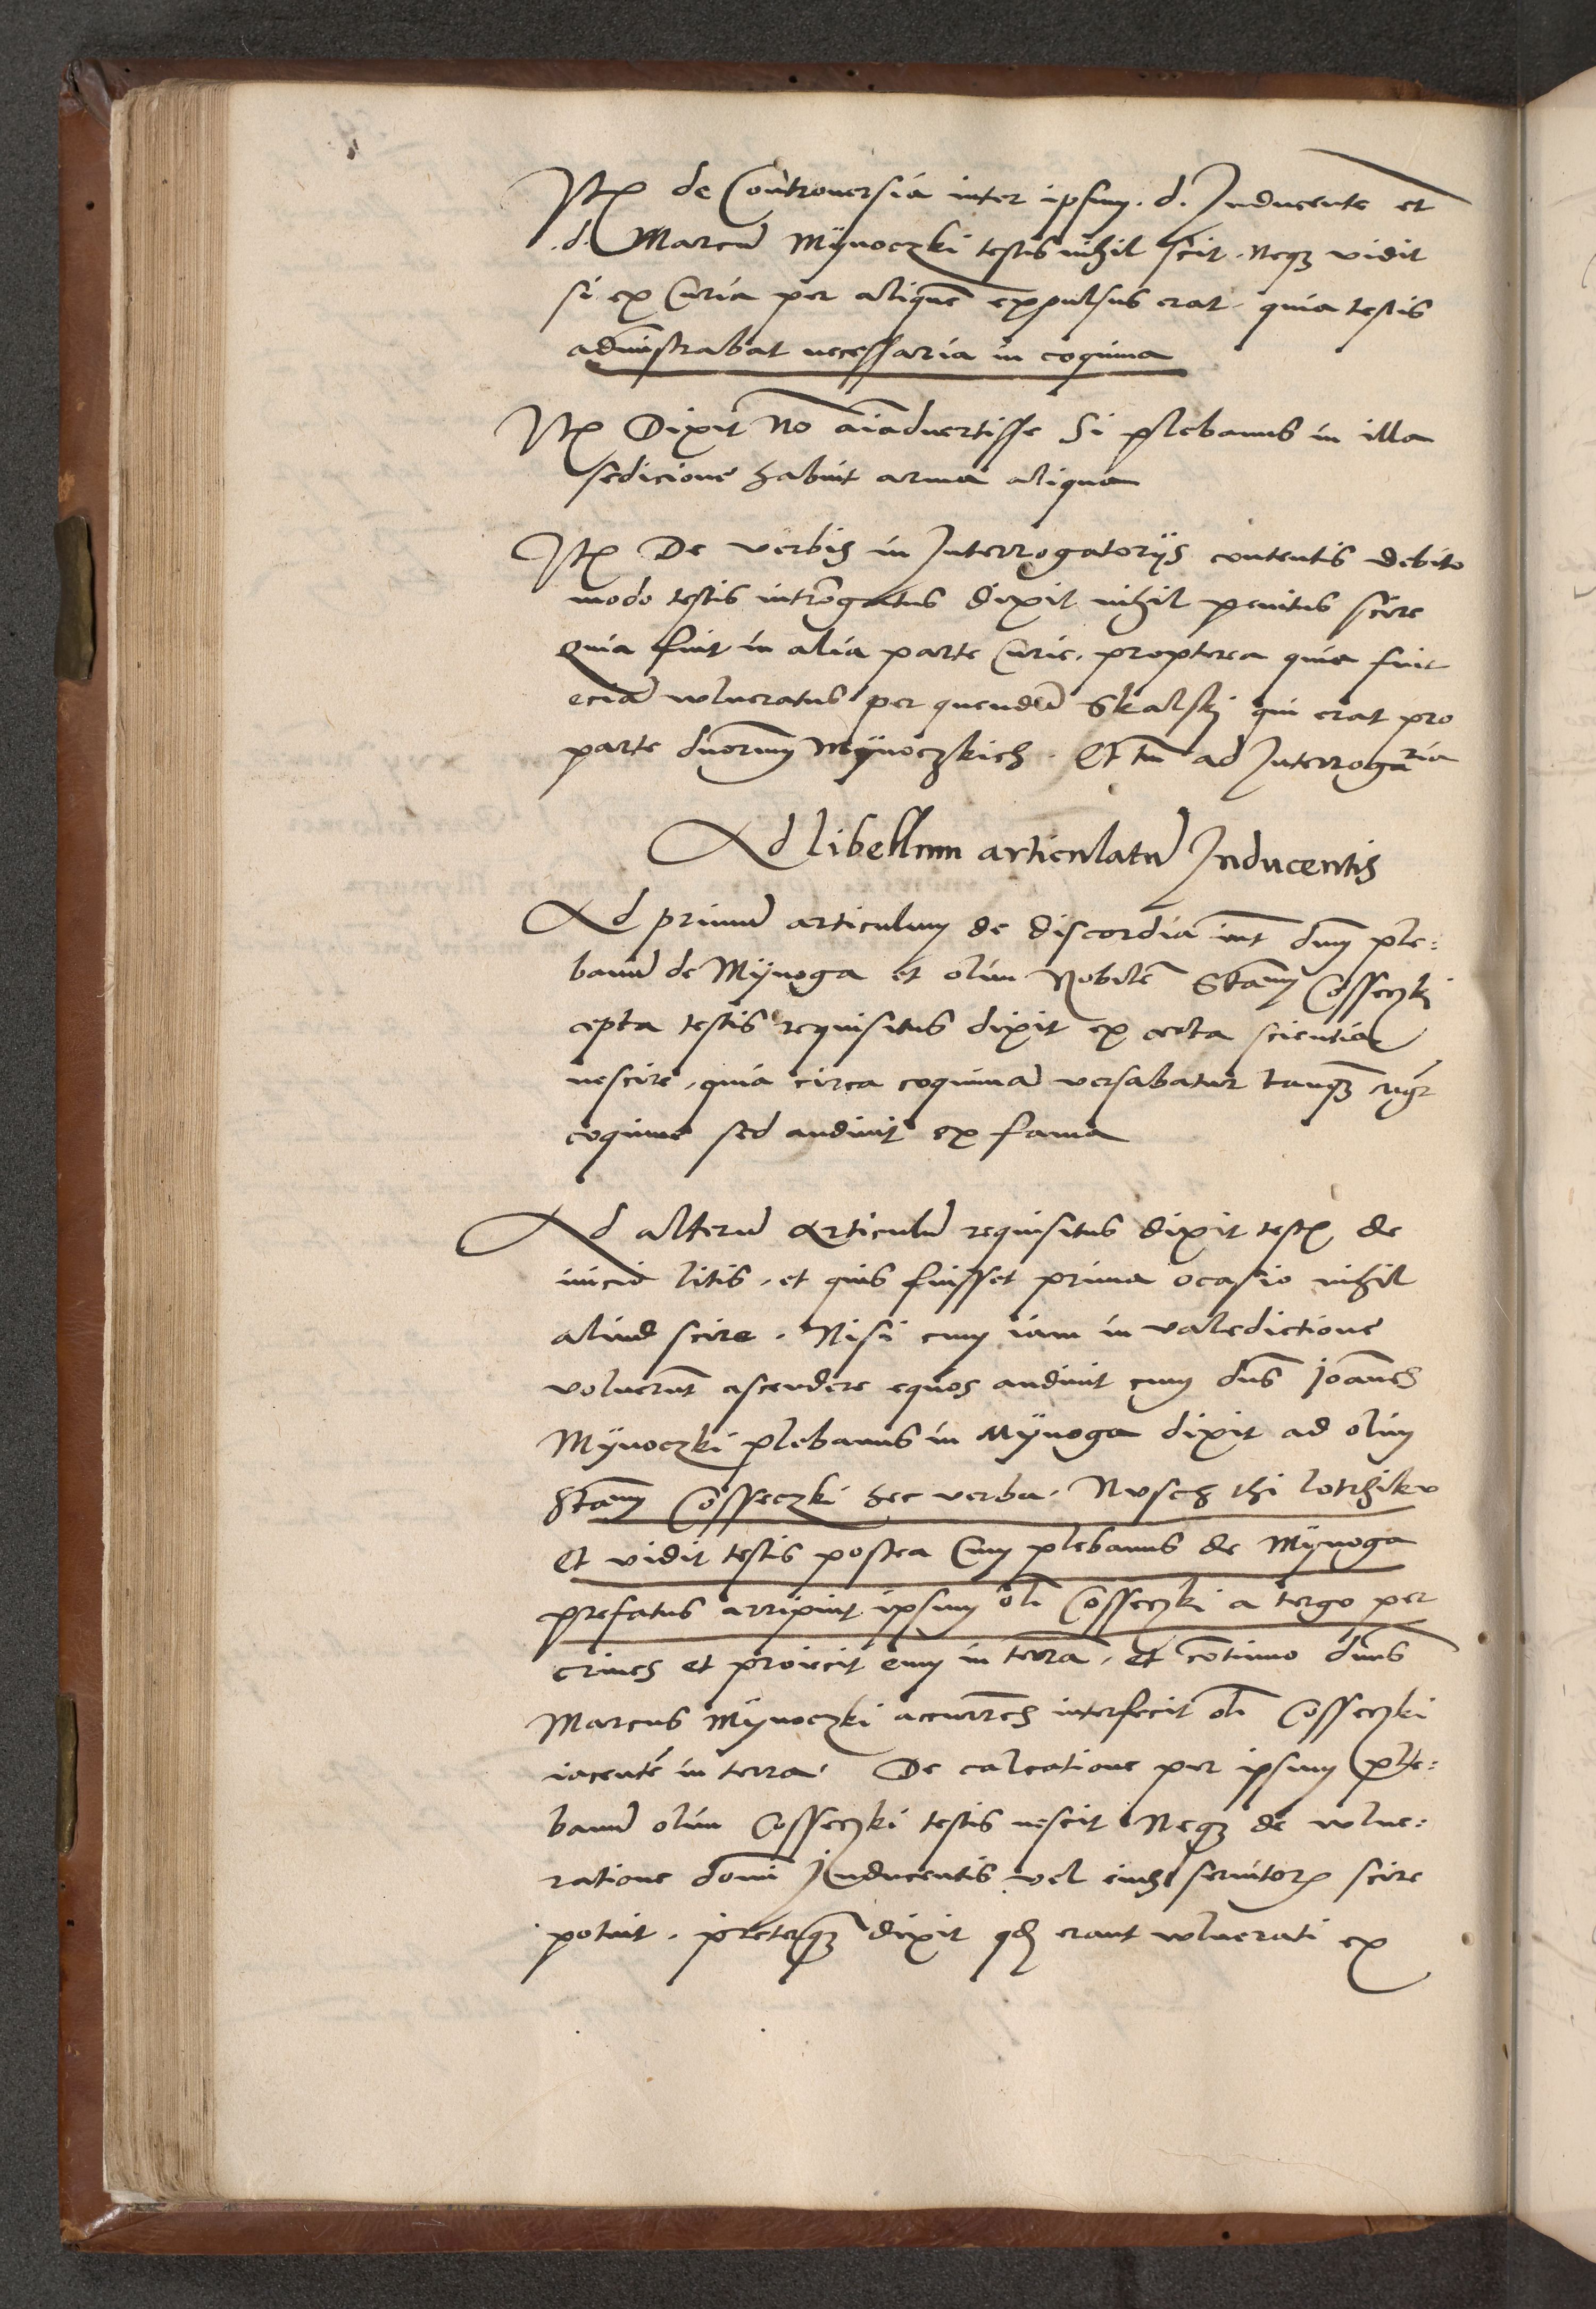 Itꝫ de Controuersia inter ipsum .d. Inducentē et
.d. Marcū Mÿnoczki testis nihil scit. neqꝫ vidit
si ex Curia per aliquē expulsus erat quia testis
adminstrabat necessaria in coquina
Itꝫ Dixit No aiaduertisse Si plebanus in illa
sedicione habuit arma aliqua
Itꝫ De verbis in Interrogatorÿs contentis debito
modo testis intrōgatus dixit nihil penitus scire
quia fuit in alia parte Curie, propterea quia fuit
eciā wlneratus per quendā Skalskj qui erat pro
parte duorum Mÿnoczkich. Et tm̄ ad Interrogaria
Ad libellum articulatū Inducentis
Ad primū articulum de discordia int̄ dm̄ ple:
banū de Mÿnoga et olim Nobilē Stam̄ Cosseczkj
cepta testis requisitus dixit ex certa scientia
nescire, quia circa coquinā versabatur tanqꝫ mgr̄
coquine sed audiuit ex fama
Ad alterū articulū requisitus dixit testꝫ de
inicio litis, et quis fuisset prima ocasio nihil
aliud scire. Nisi cum iam in valedictione
voluerūt ascendere equos audiuit cum dn̄s Joan̄es
Mÿnoczki plebanus in Mÿnoga dixit ad olim
Stam̄ Cosseczki hec verba. Nvsch thi lotrziku
Et vidit testis postea Cum plebanus de Mÿnoga
prefatus arripuit ipsum oli Cosseczki a tergo per
crines et proiecit eum in terrā, et cōtinuo dn̄us
Marcus Mÿnoczki accurrēs interfecit oli Cosseczki
iacentē in terra. De calcatione per ipsum ple:
banū olim Cosseczki testis nescit Neqꝫ de wlne:
ratione domī Inducentis vel eius seruitorꝫ scire
potuit. preterqꝫ dixit qđ erant wlnerati ex